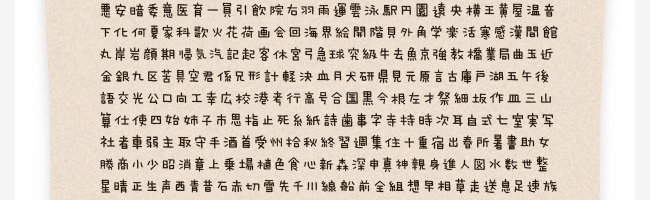 悪安暗委意医育一員引飲院右羽雨運雲泳駅円園遠央横王黄屋温音
下化何夏家科歌火花荷画会回海界絵開階貝外角学楽活寒感漢間館
丸岸岩顔期帰気汽記起客休宮弓急球究級牛去魚京強教橋業局曲玉近
金銀九区苦具空君係兄形計軽決血月犬研県見元原言古庫戸湖五午後
語交光公口向工幸広校港考行高号合国黒今根左才祭細坂作皿三山
算仕使四始姉子市思指止死糸紙詩歯事字寺持時次耳自式七室実写
社者車弱主取守手酒首受州拾秋終習週集住十重宿出春所暑書助女
勝商小少昭消章上乗場植色食心新森深申真神親身進人図水数世整
星晴正生声西青昔石赤切雪先千川線船前全組想早相草走送息足速族